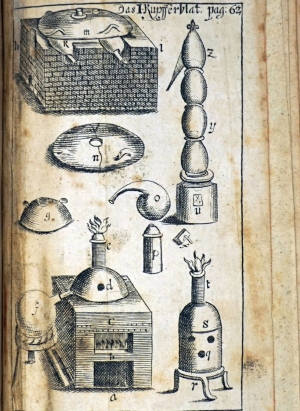 Das I Kupfferblat. pag: 62
m
k
l
h
z
y
n
o
u
g
p
e
t
d
f
s
c
q
b
r
a